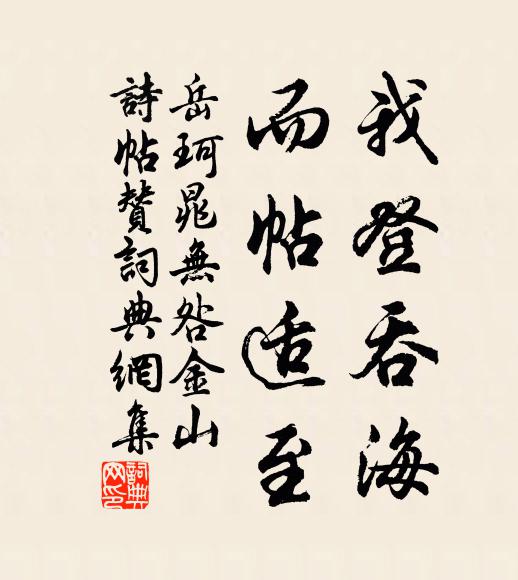 我登吞海
而帖适至
岳珂晁無咎金山
詩帖贊詞典網集
詞典網印